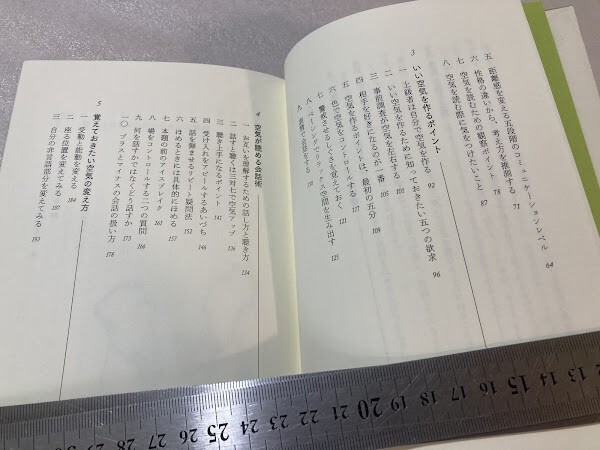 五 距離感を変える五段階のコミュニケーションレベル 64
六 性格の違いから、考え方を推測する 71
七 空気を読むための観察ポイント 78
八 空気を読む際に気をつけたいこと 87
3 いい空気を作るポイント
一 上級者は自分で空気を作る 92
二 いい空気を作るために知っておきたい五つの欲求 96
三 事前調査が空気を左右する 103
四 相手を好きになるのが一番 109
五 空気を作るポイントは、最初の五分
六 色で空気をコントロールする 117
七 警戒させるしぐさを覚えておく 121
八 ペーシングでリラックス空間を生み出す 125
九 表情で会話をする
4 空気が読める会話術
一 お互いを理解するための話し方と聴き方 134
二 話すと聴くは三対七で空気アップ 136
三 聴き上手になるポイント 141
四 受け入れをアピールするあいづち 146
五 話を弾ませるリピート疑問法 152
六 ほめるときには具体的にほめる 157
七 本題の前のアイスブレイク 161
八 場をコントロールする二つの質問 166
九 何を話すかではなくどう話すか 173
一〇 プラスとマイナスの会話の扱い方 178
5 覚えておきたい空気の変え方
一 受動と能動を変える 184
二 座る位置を変えてみる 187
三 自分の非言語部分を変えてみる 193
10
11
12
13
14
15
16
17
18
19
20
21
22
23
24
25
26